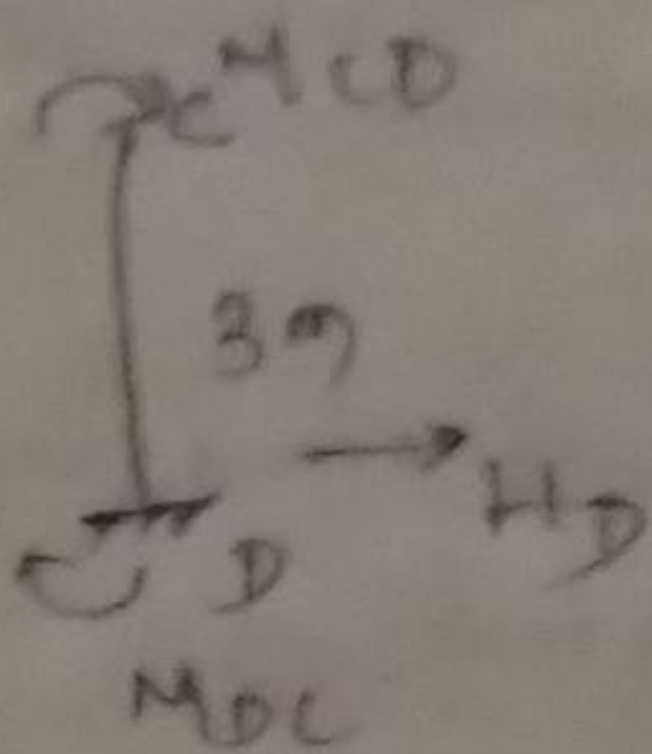 C M CD
3m
H D
D
M DC